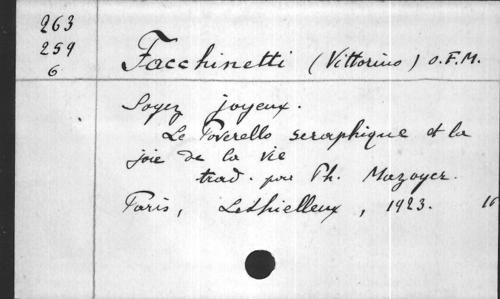 263
259
6
Facchinetti (Vittorino) O.F.M.
Soyez joyeux.
Le Poverello seraphique et la
joie de la vie
trad. par Ph. Mazoyer.
Paris, Lethielleux, 1923. 16